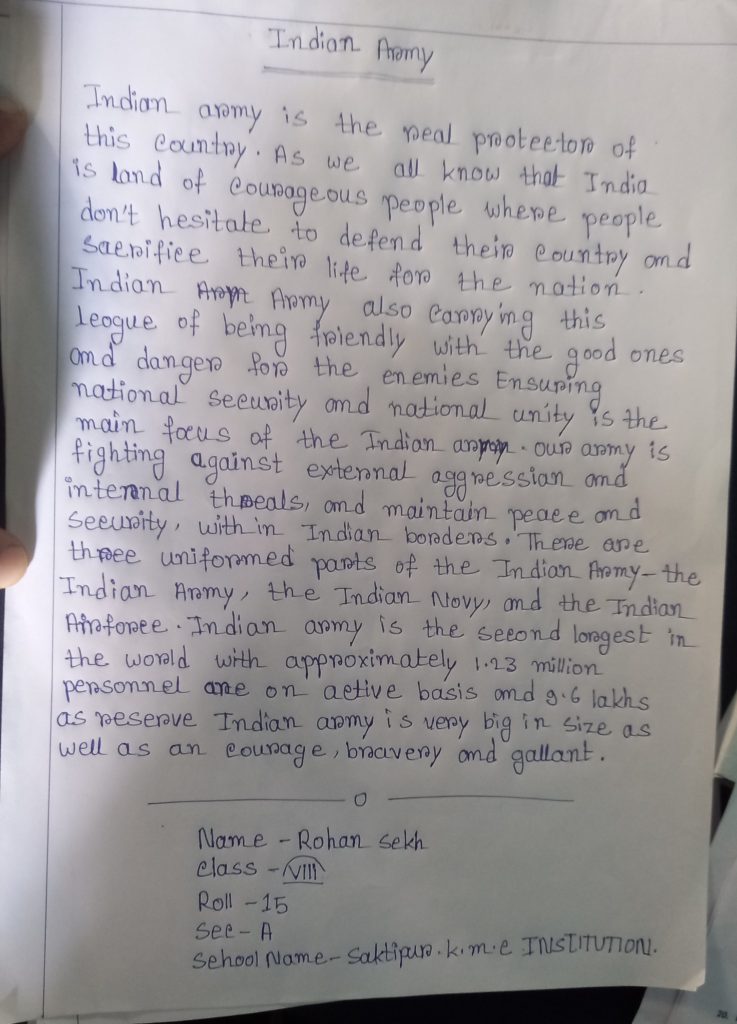 Indian Army
Indian army is the real protector of
this country. As we all know that India
is land of courageous people where people
don't hesitate to defend their country and
sacrifice their life for the nation.
Indian Army also carrying this
league of being friendly with the good ones
and danger for the enemies Ensuring
national security and national unity is the
main focus of the Indian army. our army is
fighting against external aggressian and
internal threals, and maintain peace and
security, within Indian borders. There are
three uniformed parts of the Indian Army-the
Indian Army, the Indian Navy, and the Indian
Airforce. Indian army is the second largest in
the world with approximately 1.23 million
personnel are on active basis and 9.6 lakhs
as reserve Indian army is very big in size as
well as an courage, bravery and gallant.
Name - Rohan Sekh
class - VIII
Roll - 15
Sec - A
School Name - Saktipur. k.m.c INSTITUTION.